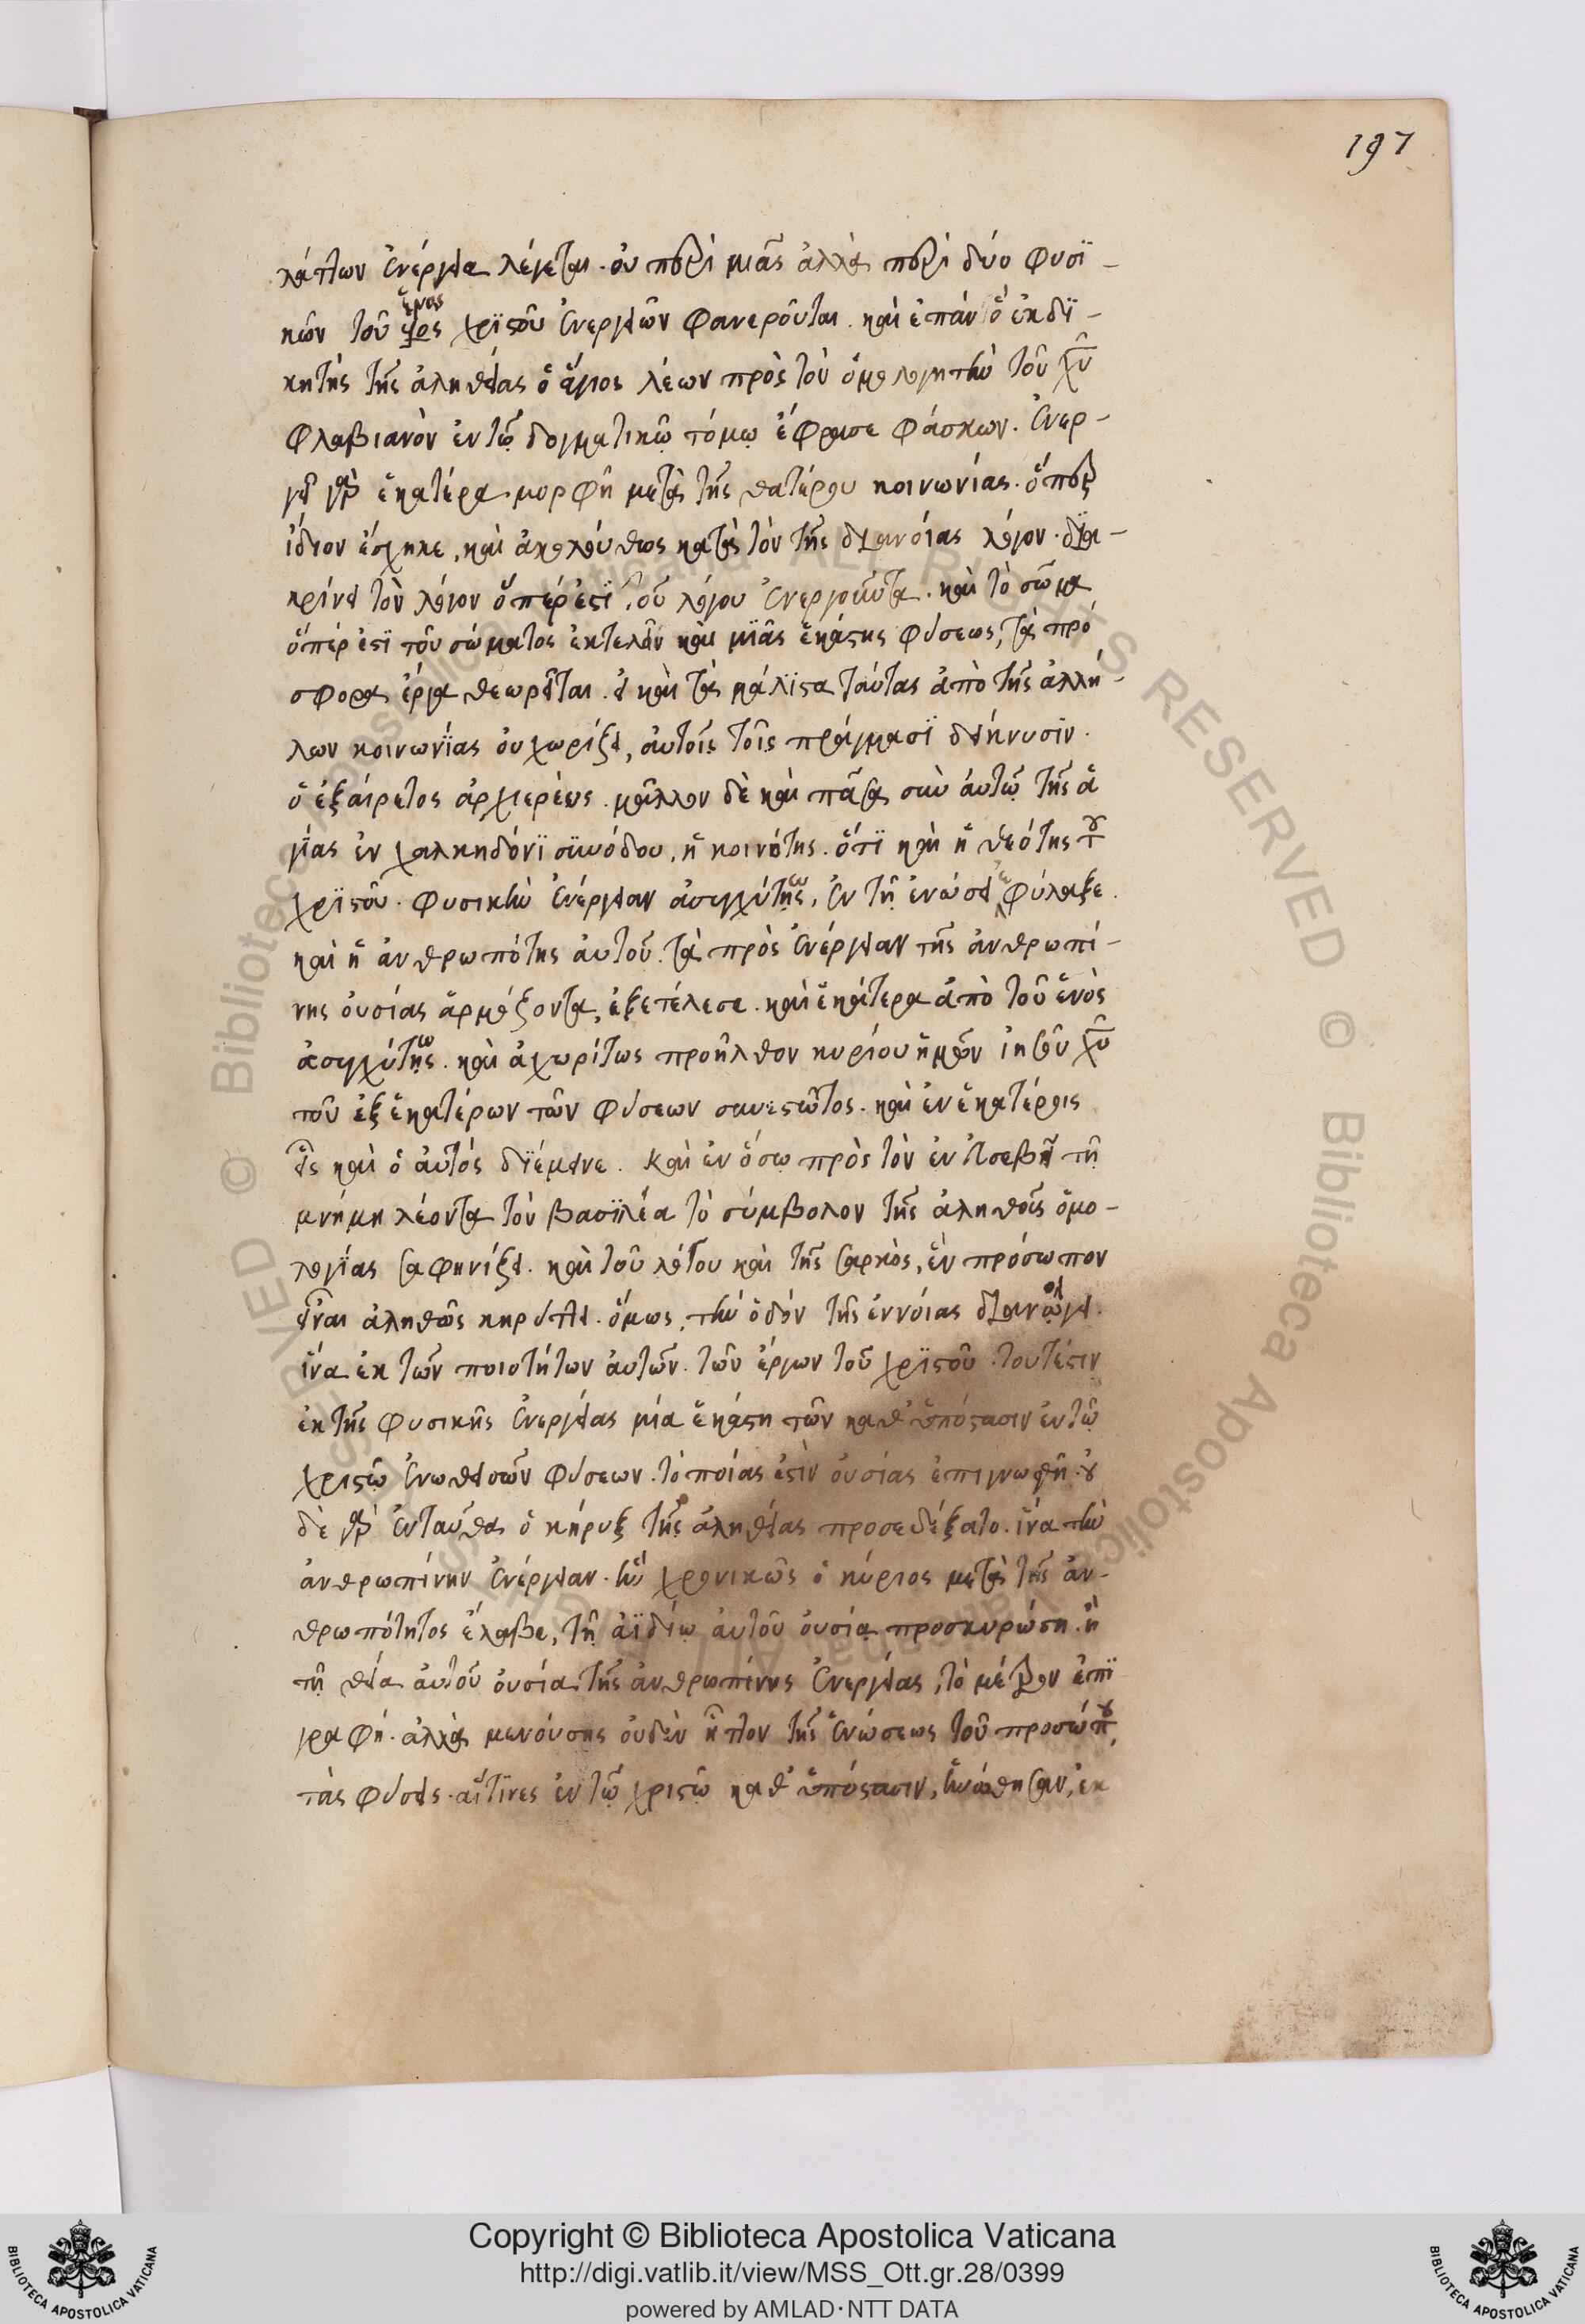 197
λάττων ἐνέργεια λέγεται. οὐ περὶ μιᾶς ἀλλὰ περὶ δύο φυσϊ-
κῶν τοῦ ἑνος χρϊστοῦ ἐνεργειῶν φανεροῦται. καὶ ἐπὰν ὁ ἐκδϊ-
κητὴς τῆς ἀληθείας ὁ ἅγιος λέων πρὸς τὸν ὁμολογητὴν τοῦ χυ
φλαβιανὸν ἐν τῷ δογματικῷ τόμῳ ἔφρασε φάσκων. ἐνερ-
γεῖ γὰρ ἑκατέρα μορφὴ μετὰ τῆς θατέρου κοινωνίας. ὅπερ
ἴδιον ἔσχηκε, καὶ ἀκολούθως κατὰ τὸν τῆς διανοίας λόγον. δϊα-
κρίνει τὸν λόγον ὅπέρ ἐστϊ τοῦ λόγου ἐνεργοῦντα. καὶ τὸ σῶμα
ὅπέρ ἐστϊ τοῦ σώματος ἐκτελοῦν καὶ μϊᾶς ἑκάστης φύσεως, τὰ πρό
σφορα ἔργα θεωρεῖται. εἰ καὶ τὰ μάλϊστα ταύτας ἀπὸ τῆς ἀλλή-
λων κοινωνϊας οὐ χωρίζει, αὐτοῖς τοῖς πράγμασϊ δείκνυσϊν.
ὁ ἐξαίρετος ἀρχιερέως. μᾶλλον δὲ καὶ πᾶσα σὺν αὐτῷ τῆς ἁ
γίας ἐν χαλκηδόνϊ συνόδου, ἡ κοινότης. ὅτϊ καὶ ἡ θεότης τοῦ
χρϊστοῦ. φυσικὴν ἐνέργειαν ἀσυγχύτως, ἐν τῇ ἑνώσει ἐφύλαξε.
καὶ ἡ ἀνθρωπότης αὐτοῦ. τὰ πρὸς ἐνέργειαν τῆς ἀνθρωπί-
νης οὐσίας ἁρμόζοντα, ἐξετέλεσε. καὶ ἑκάτερα ἀπὸ τοῦ ἑνὸς
ἀσυγχύτως. καὶ ἀχωρίτως προῆλθον κυρίου ἡμῶν ἰησοῦ χυ
τοῦ ἐξ ἑκατέρων τῶν φύσεων συνεστῶτος. καὶ ἐν ἑκατέροις
εἷς καὶ ὁ αὐτός δϊέμεινε. καὶ ἐν ὅσῳ πρὸς τὸν ἐν εὐσεβεῖ τῇ
μνήμη λέοντα τὸν βασϊλέα τὸ σύμβολον τῆς ἀληθοῦς ὁμο-
λογϊας σαφηνίζει. καὶ τοῦ λόγου καὶ τῆς σαρκὸς, ἓν πρόσωπον
εἶναι ἀληθῶς κηρύττει. ὅμως, τὴν ὁδόν τῆς ἐννοίας διανοίγει.
ἵνα ἐκ τῶν ποιοτήτων αὐτῶν. τῶν ἔργων τοῦ χρϊστοῦ. τουτέστιν
ἐκ τῆς φυσικῆς ἐνεργείας μία ἑκάστη τῶν καθ' ὑπόστασιν ἐν τῷ
χριστῷ ἑνωθεισῶν φύσεων. τὸ ποίας ἐστὶν οὐσίας ἐπιγνωσθῆ. οὐ
δὲ γὰρ ἐνταῦθα ὁ κήρυξ τῆς ἀληθείας προσεδέξατο. ἵνα τὴν
ἀνθρωπίνην ἐνέργειαν. ἣν χρονικῶς ὁ κύριος μετὰ τῆς ἀν-
θρωπότητος ἔλαβε, τῇ ἀϊδίῳ αὐτοῦ οὐσία προσκυρώση. ἢ
τῇ θεία αὐτοῦ οὐσία τῆς ἀνθρωπίνης ἐνεργείας, τὸ μέτρον ἐπϊ
γραφή. ἀλλὰ μενούσης οὐδὲν ἧττον τῆς ἑνώσεως τοῦ προσώπου,
τὰς φύσεις. αἵτϊνες ἐν τῷ χριστῷ καθ' ὑπόστασιν, ἡνώθησαν, ἐκ
Copyright © Biblioteca Apostolica Vaticana
http://digi.vatlib.it/view/MSS_Ott.gr.28/0399
powered by AMLAD·NTT DATA